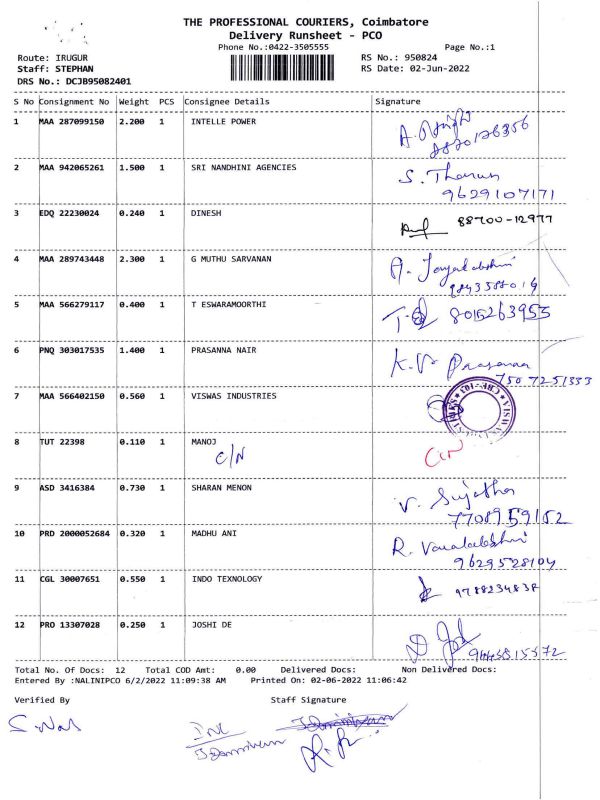 THE PROFESSIONAL COURIERS, Coimbatore
Delivery Runsheet - PCO
Phone No.:0422-3505555 Page No.:1
Route: IRUGUR RS No.: 950824
Staff: STEPHAN RS Date: 02-Jun-2022
DRS No.: DCJB95082401
S No Consignment No Weight PCS Consignee Details Signature
1 MAA 287099150 2.200 1 INTELLE POWER
2 MAA 942065261 1.500 1 SRI NANDHINI AGENCIES S. Tharun
9629107171
3 EDQ 22230024 0.240 1 DINESH 88700-12977
4 MAA 289743448 2.300 1 G MUTHU SARVANAN
5 MAA 566279117 0.400 1 T ESWARAMOORTHI 8015263955
6 PNQ 303017535 1.400 1 PRASANNA NAIR K.V. Prasanna
7507251333
7 MAA 566402150 0.560 1 VISWAS INDUSTRIES
8 TUT 22398 0.110 1 MANOJ
C/N C/N
9 ASD 3416384 0.730 1 SHARAN MENON V. Sujatha
7708959152
10 PRD 2000052684 0.320 1 MADHU ANI R. Varalakshmi
9629528104
11 CGL 30007651 0.550 1 INDO TEXNOLOGY 9788234838
12 PRO 13307028 0.250 1 JOSHI DE
Total No. Of Docs: 12 Total COD Amt: 0.00 Delivered Docs: Non Delivered Docs:
Entered By :NALINIPCO 6/2/2022 11:09:38 AM Printed On: 02-06-2022 11:06:42
Verified By Staff Signature